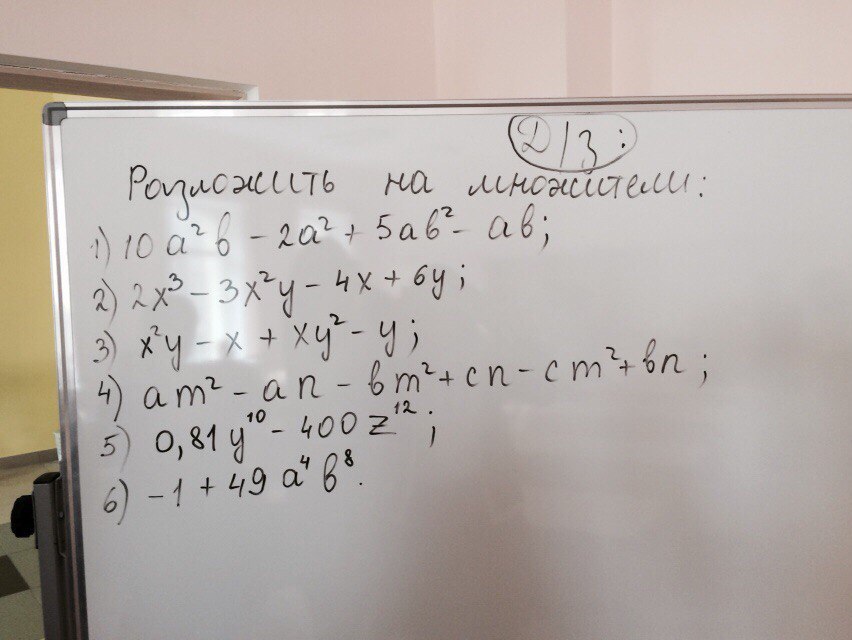 Д/З:
Разложить на множители:
1) 10a²b - 2a² + 5ab² - ab;
2) 2x³ - 3x²y - 4x + 6y;
3) x²y - x + xy² - y;
4) am² - an - bm² + cn - cm² + bn;
5) 0,81y¹⁰ - 400z¹²;
6) -1 + 49a⁴b⁸.